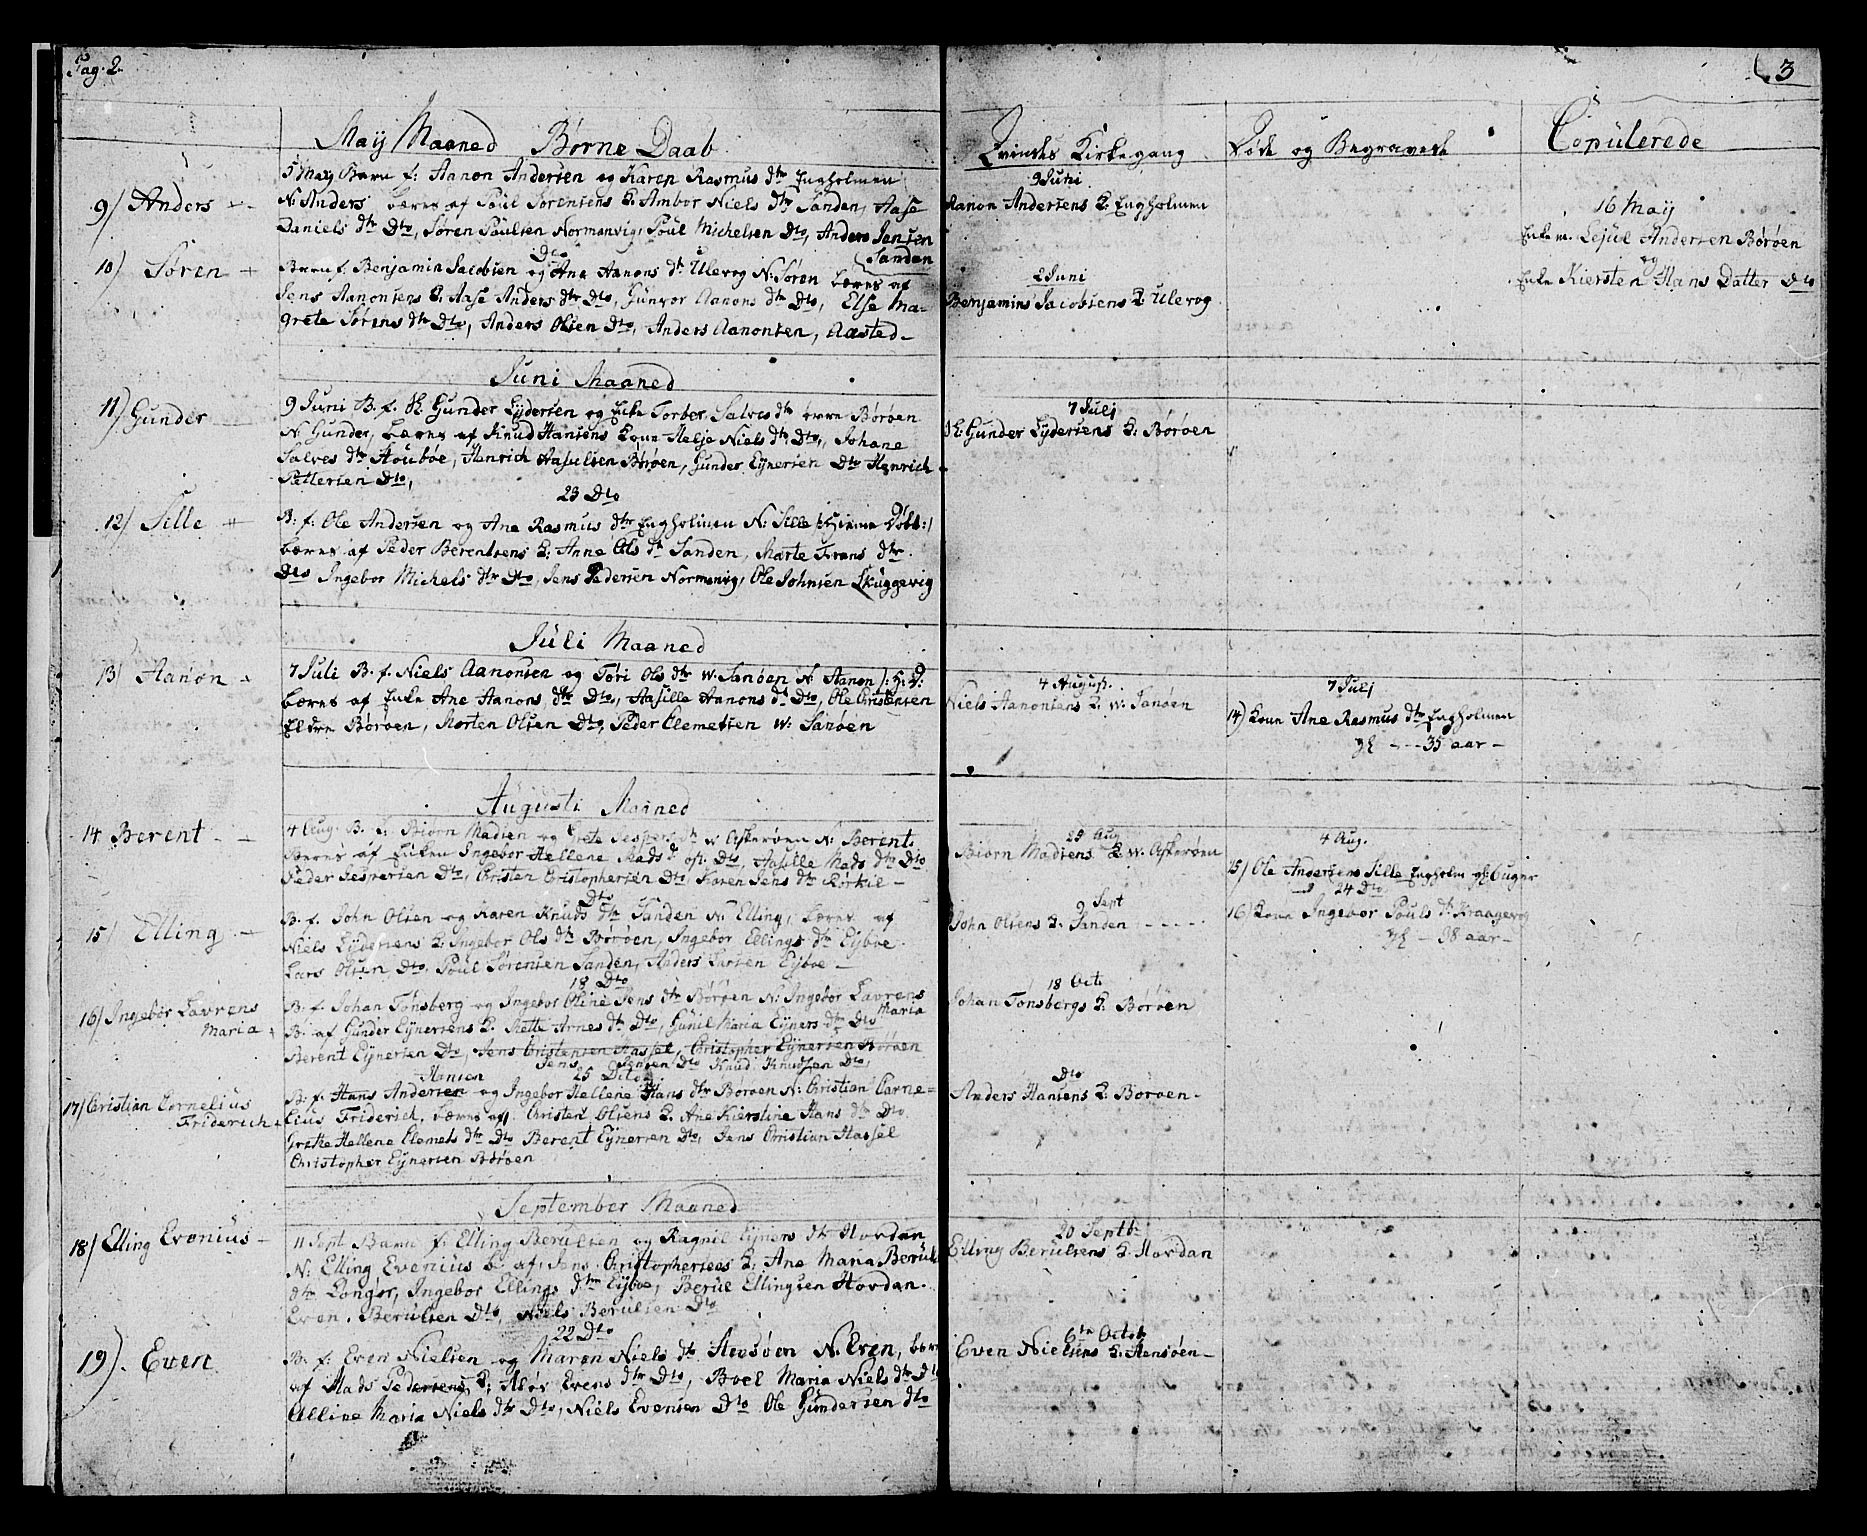 Pag. 2.
May Maaned Børne Daab
5 May Barn f: Aanon Andersen og Karen Rasmus dtr Engholmen
9/ Anders
N. Anders bæres af Poul Sørensens K: Ambor Niels dtr Sanden, Aase
Daniels dtr Dto, Søren Poulsen Normanvig, Poul Michelsen Dto, Anders Jensen
Sanden
Dto
10/ Søren
Barn f. Benjamin Jacobsen og Ane Aanons dtr Ulevog N: Søren bæres af
Jens Aanonsens K: Aase Anders dtr Dto, Gunvor Aanons dtr Dto, Else Ma-
grete Sørens dtr Dto, Anders Olsen Dto, Anders Aanonsen, Aasted
Juni Maaned
11/ Gunder
9 Juni B. f. Gunder Lydersen og Torber Salves dtr Børøen
N. Gunder, bæres af Knud Hansens Kone Helje Niels dtr Dto, Johane
Salves dtr Houbøe, Henrich Aasulsen Børøen, Gunder Eÿnersen Dto Henrich
Pettersen Dto,
23 Dto
12/ Sille
B. f: Ole Andersen og Ane Rasmus dtr Engholmen N: Sille /: Hieme Døbt:/
bæres af Peder Berentsens K: Anne Ols dtr Sanden, Marte Frans dtr
Dto Ingebor Michels dtr Dto, Jens Pedersen Normanvig, Ole Johnsen Skuggevig
Juli Maaned
13/ Aanon
7 Juli B. f. Niels Aanonsen og Tøri Ols dtr W. Sanøen N Aanon /: H: D:
bæres af Enke Ane Aanons dtr Dto, Aasille Aanons dtr Dto, Ole Christensen
Eldre Børøen, Morten Olsen Dto, Peder Clemetsen W. Sanøen
Augusti Maaned
14 Berent
4 Aug. B. f: Biørn Madsen og Grete Jespers dtr W Askerøen N: Berent
Bæres af Enken Ingebor Hellene Mads dtr Dto, Aasille Mads dtr Dto
Peder Jespersen Dto, Christen Christophersen Dto, Karen Jens dtr
Dto
15/ Elling
B. f. John Olsen og Karen Knuds dtr Sanden N: Elling, bæres af
Niels Lydersens K: Ingebor Ols dtr Børøen, Ingebor Ellings dtr Eÿboe
Lars Olsen Dto, Poul Sørensen Sanden, Anders Larsen Eÿboe
18 Dto
16/ Ingebor Lavrens
Maria
B. f. Johan Tønsberg og Ingebor Oline Jens dtr Børøen N: Ingebor Lavrens
Maria
B: af Gunder Eÿnersens K. Mette Arnes dtr Dto, Gunil Maria Eÿners dtr Dto
Berent Eÿnersen Dto, Jens Christensen Hassel, Christopher Eÿnersen Børøen
Jens Jensen Dto Knud Knudsen Dto
25 Dito
Hansen
17/ Christian Cornelius
Friderich
B. f. Hans Andersen og Ingebor Hellene Hans dtr Børøen N: Christian Corne=
lius Friderich, bæres af, Christen Olsens K. Ane Kierstine Hans dtr Dto,
Grethe Hellene Clemets dtr Dto Berent Eÿnersen Dto, Jens Christian Hassel
Christopher Eÿnersen Børøen
September Maaned
18/ Elling Evenius
11 Sept. Barn f. Elling Berulsen og Ragnil Eÿners dtr Hovdan
N: Elling Evenius b: af: Jens Christophersens K: Ane Maria Beruls
dtr Longør, Ingebor Ellings dtr Eÿboe, Berul Ellingsen Hovdan.
Even Berulsen Dto, Niels Berulsen Dto
22 Dto
19/. Even
B: f: Even Nielsen og Maren Niels dtr Steesøen N. Even, bæres
af Mads Pedersens K: Aløv Evens dtr Dto, Boel Maria Niels dtr Dto
Alline Maria Niels dtr Dto, Niels Evensen Dto Ole Gundersen dto
3
Qvindes Kirkegang
9 Juni
Aanon Andersens K: Engholmen
2 Juni
Benjamins Jacobsens K Ulevog
7 Julj
Gunder Lydersens K: Børøen
4 August.
Niels Aanonsens K W: Sanøen
25 Aug
Biørn Madsens K W. Askerøen
9 Sept
John Olsens K: Sanden
18 Octo
Johan Tønsbergs K: Børøen
Dto
Anders Hansens K: Børøen
20 Septbr
Elling Berulsens K: Hovdan
6te Octob
Even Nielsens K: Stensøen
Døde og Begravede
7 Julj
14) Kone Ane Rasmus dtr Engholmen
gl --- 35 aar
4 Aug.
15) Ole Andersens Sille Engholm gl: 6 uger
24 Dto
16) Kone Ingebor Pouls dtr Kraagevog
gl --- 38 aar
Copulerede
16 Maÿ
Enkem. Lejul Andersen Børøen
og
Enke Kiersten Hans Datter Dto